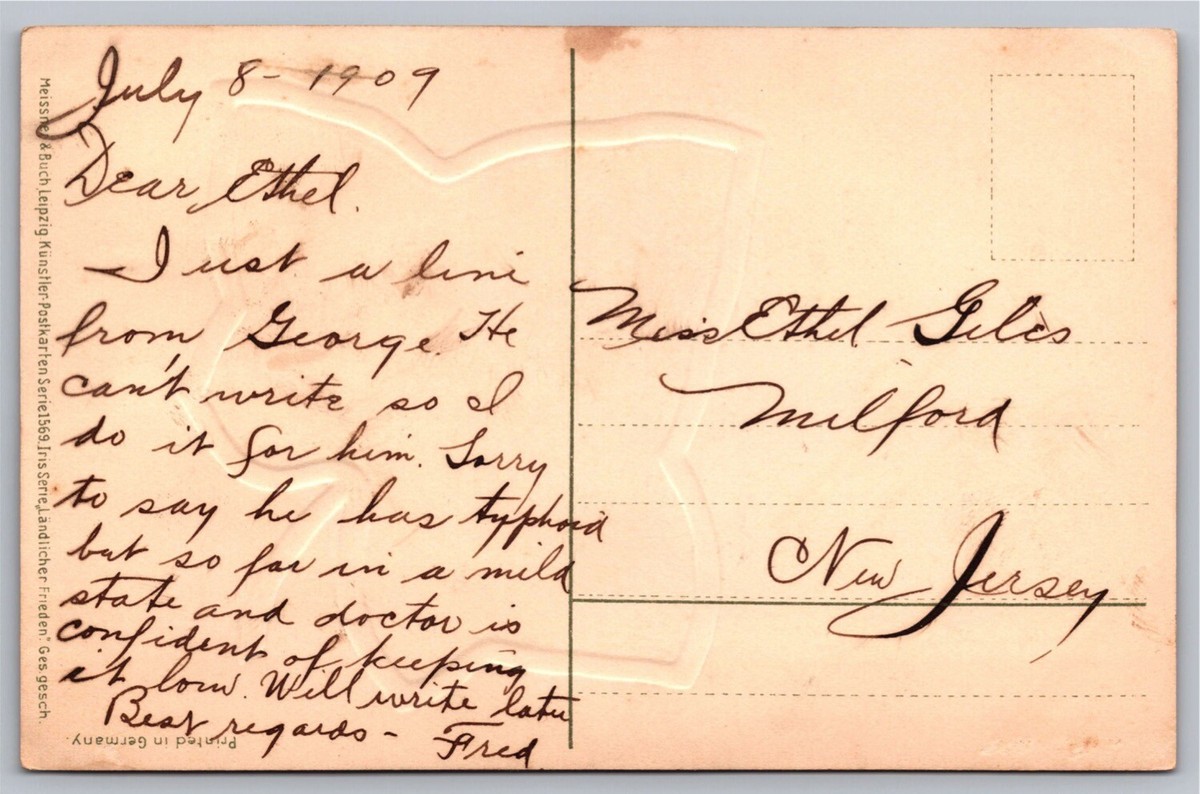 July 8- 1909
Dear Ethel.
Just a line
from George. He
can't write so I
do it for him. Sorry
to say he has typhoid
but so far in a mild
state and doctor is
confident of keeping
it low. Will write later
Best regards - Fred
Miss Ethel Giles
Milford
New Jersey
Meissner & Buch, Leipzig Künstler-Postkarten Serie 1569. Iris Serie „Ländlicher Frieden." Ges. gesch.
Printed in Germany.